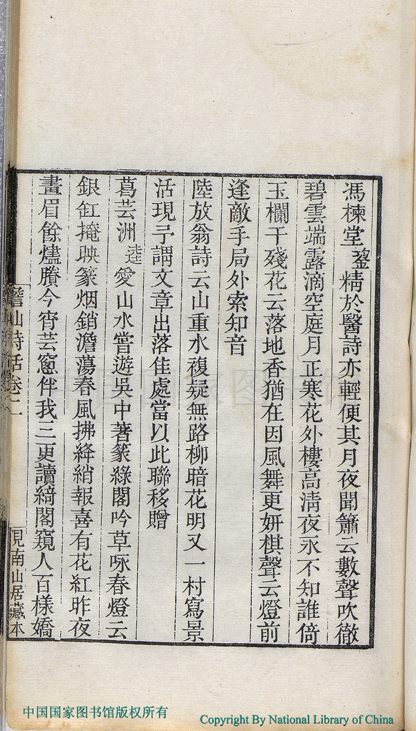 馮楝堂鋆精於醫詩亦輕便其月夜聞簫云數聲吹徹
碧雲端露滴空庭月正寒花外樓高清夜永不知誰倚
玉欄干殘花云落地香猶在因風舞更妍棋聲云燈前
逢敵手局外索知音
陸放翁詩云山重水複疑無路柳暗花明又一村寫景
活現予謂文章出落佳處當以此聯移贈
葛芸洲逵愛山水嘗遊吳中著篆綠閣吟草咏春燈云
銀缸掩映篆烟銷澹蕩春風拂絳綃報喜有花紅昨夜
畫眉餘燼賸今宵芸窻伴我三更讀綺閣窺人百樣嬌
山詩話卷二
見南山居藏本
中国国家图书馆版权所有
Copyright By National Library of China